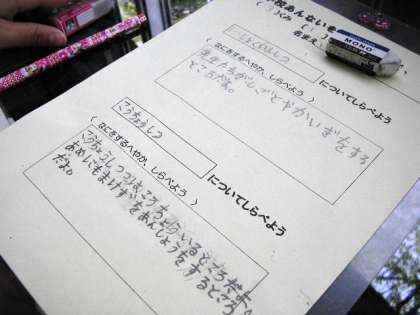 校あんないを
くみ
名まえ
MONO
しょくいんしつ
についてしらべよう
(なにをするへやか、しらべよう)
先生たちがしごとやかいぎをする
ところだよ。
こうちょうしつ
についてしらべよう
(なにをするへやか、しらべよう)
こうちょうしつはこうちょういるところだよ
あめにもまけずをあんしょうをするところ
だよ。